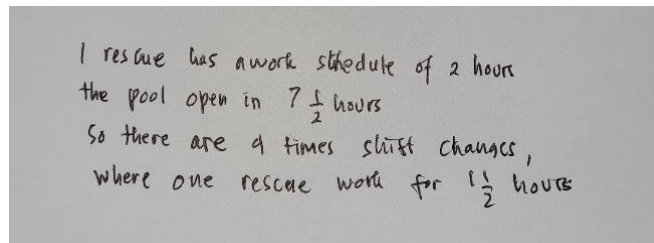 1 rescue has a work schedule of 2 hours
the pool open in 7 1/2 hours
So there are 4 times shift changes,
where one rescue work for 1 1/2 hours